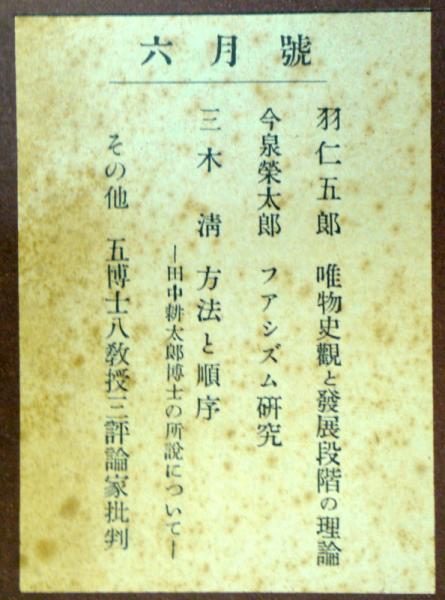 六月號
羽仁五郎 唯物史觀と發展段階の理論
今泉榮太郎 フアシズム研究
三木淸 方法と順序
―田中耕太郎博士の所說について―
その他 五博士八教授三評論家批判